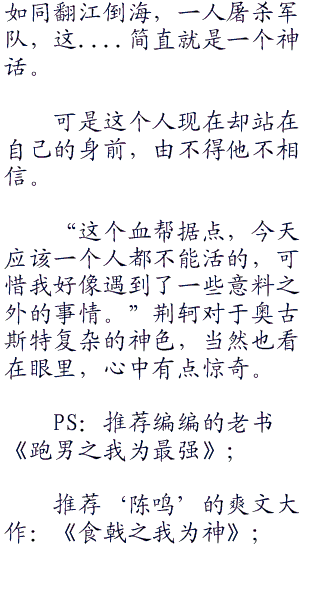 如同翻江倒海，一人屠杀军
队，这....简直就是一个神
话。
可是这个人现在却站在
自己的身前，由不得他不相
信。
“这个血帮据点，今天
应该一个人都不能活的，可
惜我好像遇到了一些意料之
外的事情。”荆轲对于奥古
斯特复杂的神色，当然也看
在眼里，心中有点惊奇。
PS：推荐编编的老书
《跑男之我为最强》；
推荐‘陈鸣’的爽文大
作：《食戟之我为神》；